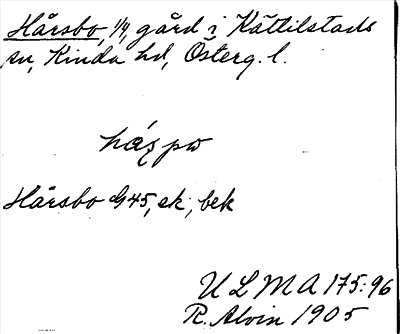 Hårsbo, 1/4, gård i Kättilstads
sn, Kinda hd, Österg. l.
Hårsbo G45, ek, bek
ULMA 175:96
R. Alvin 1905